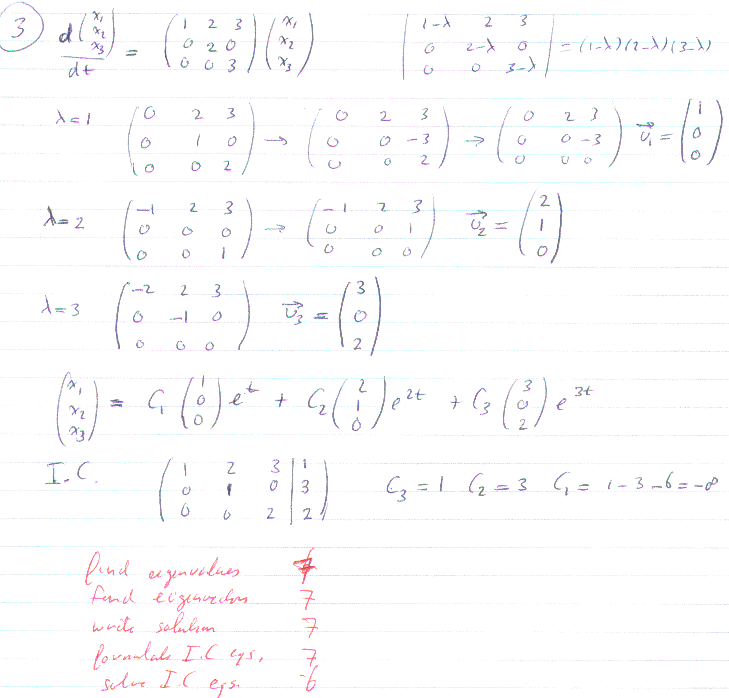 3 d(x₁ x₂ x₃)/dt = (1 2 3; 0 2 0; 0 0 3) (x₁ x₂ x₃) |1-λ 2 3; 0 2-λ 0; 0 0 3-λ| = (1-λ)(2-λ)(3-λ)
λ=1 (0 2 3; 0 1 0; 0 0 2) → (0 2 3; 0 0 -3; 0 0 2) → (0 2 3; 0 0 -3; 0 0 0) v⃗₁ = (1 0 0)
λ=2 (-1 2 3; 0 0 0; 0 0 1) → (-1 2 3; 0 0 1; 0 0 0) v⃗₂ = (2 1 0)
λ=3 (-2 2 3; 0 -1 0; 0 0 0) v⃗₃ = (3 0 2)
(x₁ x₂ x₃) = C₁ (1 0 0) eᵗ + C₂ (2 1 0) e²ᵗ + C₃ (3 0 2) e³ᵗ
I.C. (1 2 3 | 1; 0 1 0 | 3; 0 0 2 | 2) C₃ = 1 C₂ = 3 C₁ = 1-3-6 = -8
find eigenvalues
find eigenvectors 7
write solution 7
formulate I.C eqs. 7
solve I.C eqs. 6